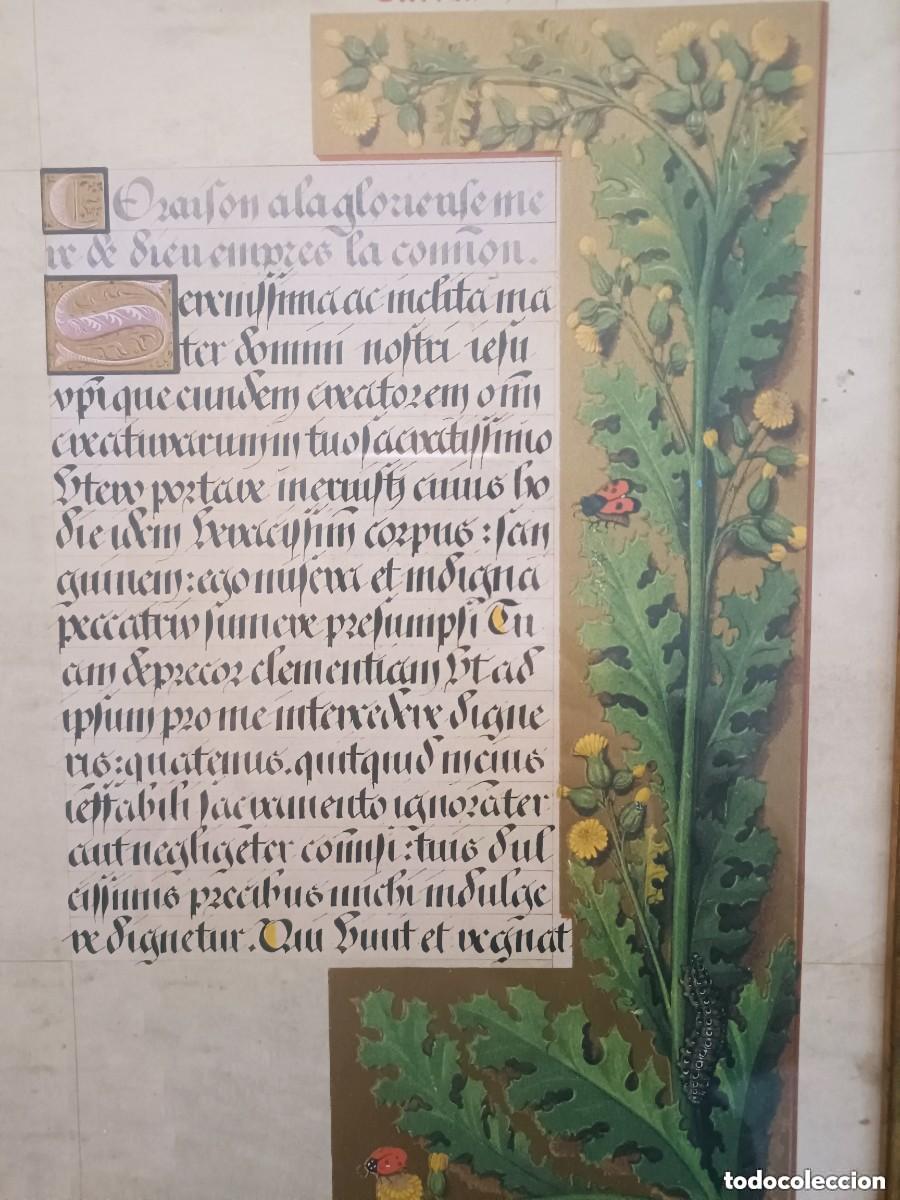 Oraison a la glorieuse me
re de dieu empres la com̄ion.
Serenissima ac inclita ma
ter domini nostri iesu
xp̄i que eundem creatorem om̄i
creaturarum in tuo sacratissimo
vtero portare meruisti cuius ho
die idem veracissim̄ corpus : san
guinem : ego misera et indigna
peccatrix sumere presumpsi Tu
am deprecor clementiam vt ad
ipsum pro me intercedere digne
ris : quatenus . quitquid in eius
ieffabili sacramento ignorāter
aut negligēter com̄isi : tuis dul
cissimis precibus michi indulge
re dignetur . Qui viuit et regnat
todocoleccion